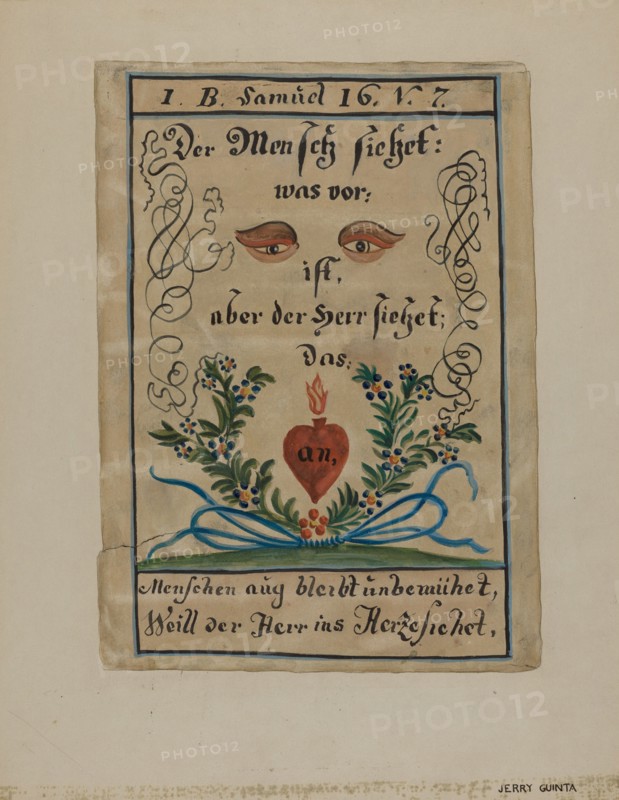 I. B. Samuel 16. V. 7.
Der Mensch siehet:
was vor:
ist,
aber der Herr siehet;
Das:
an,
Menschen aug bleibt unbemühet,
Weill der Herr ins Herze siehet,
JERRY GUINTA
PHOTO12